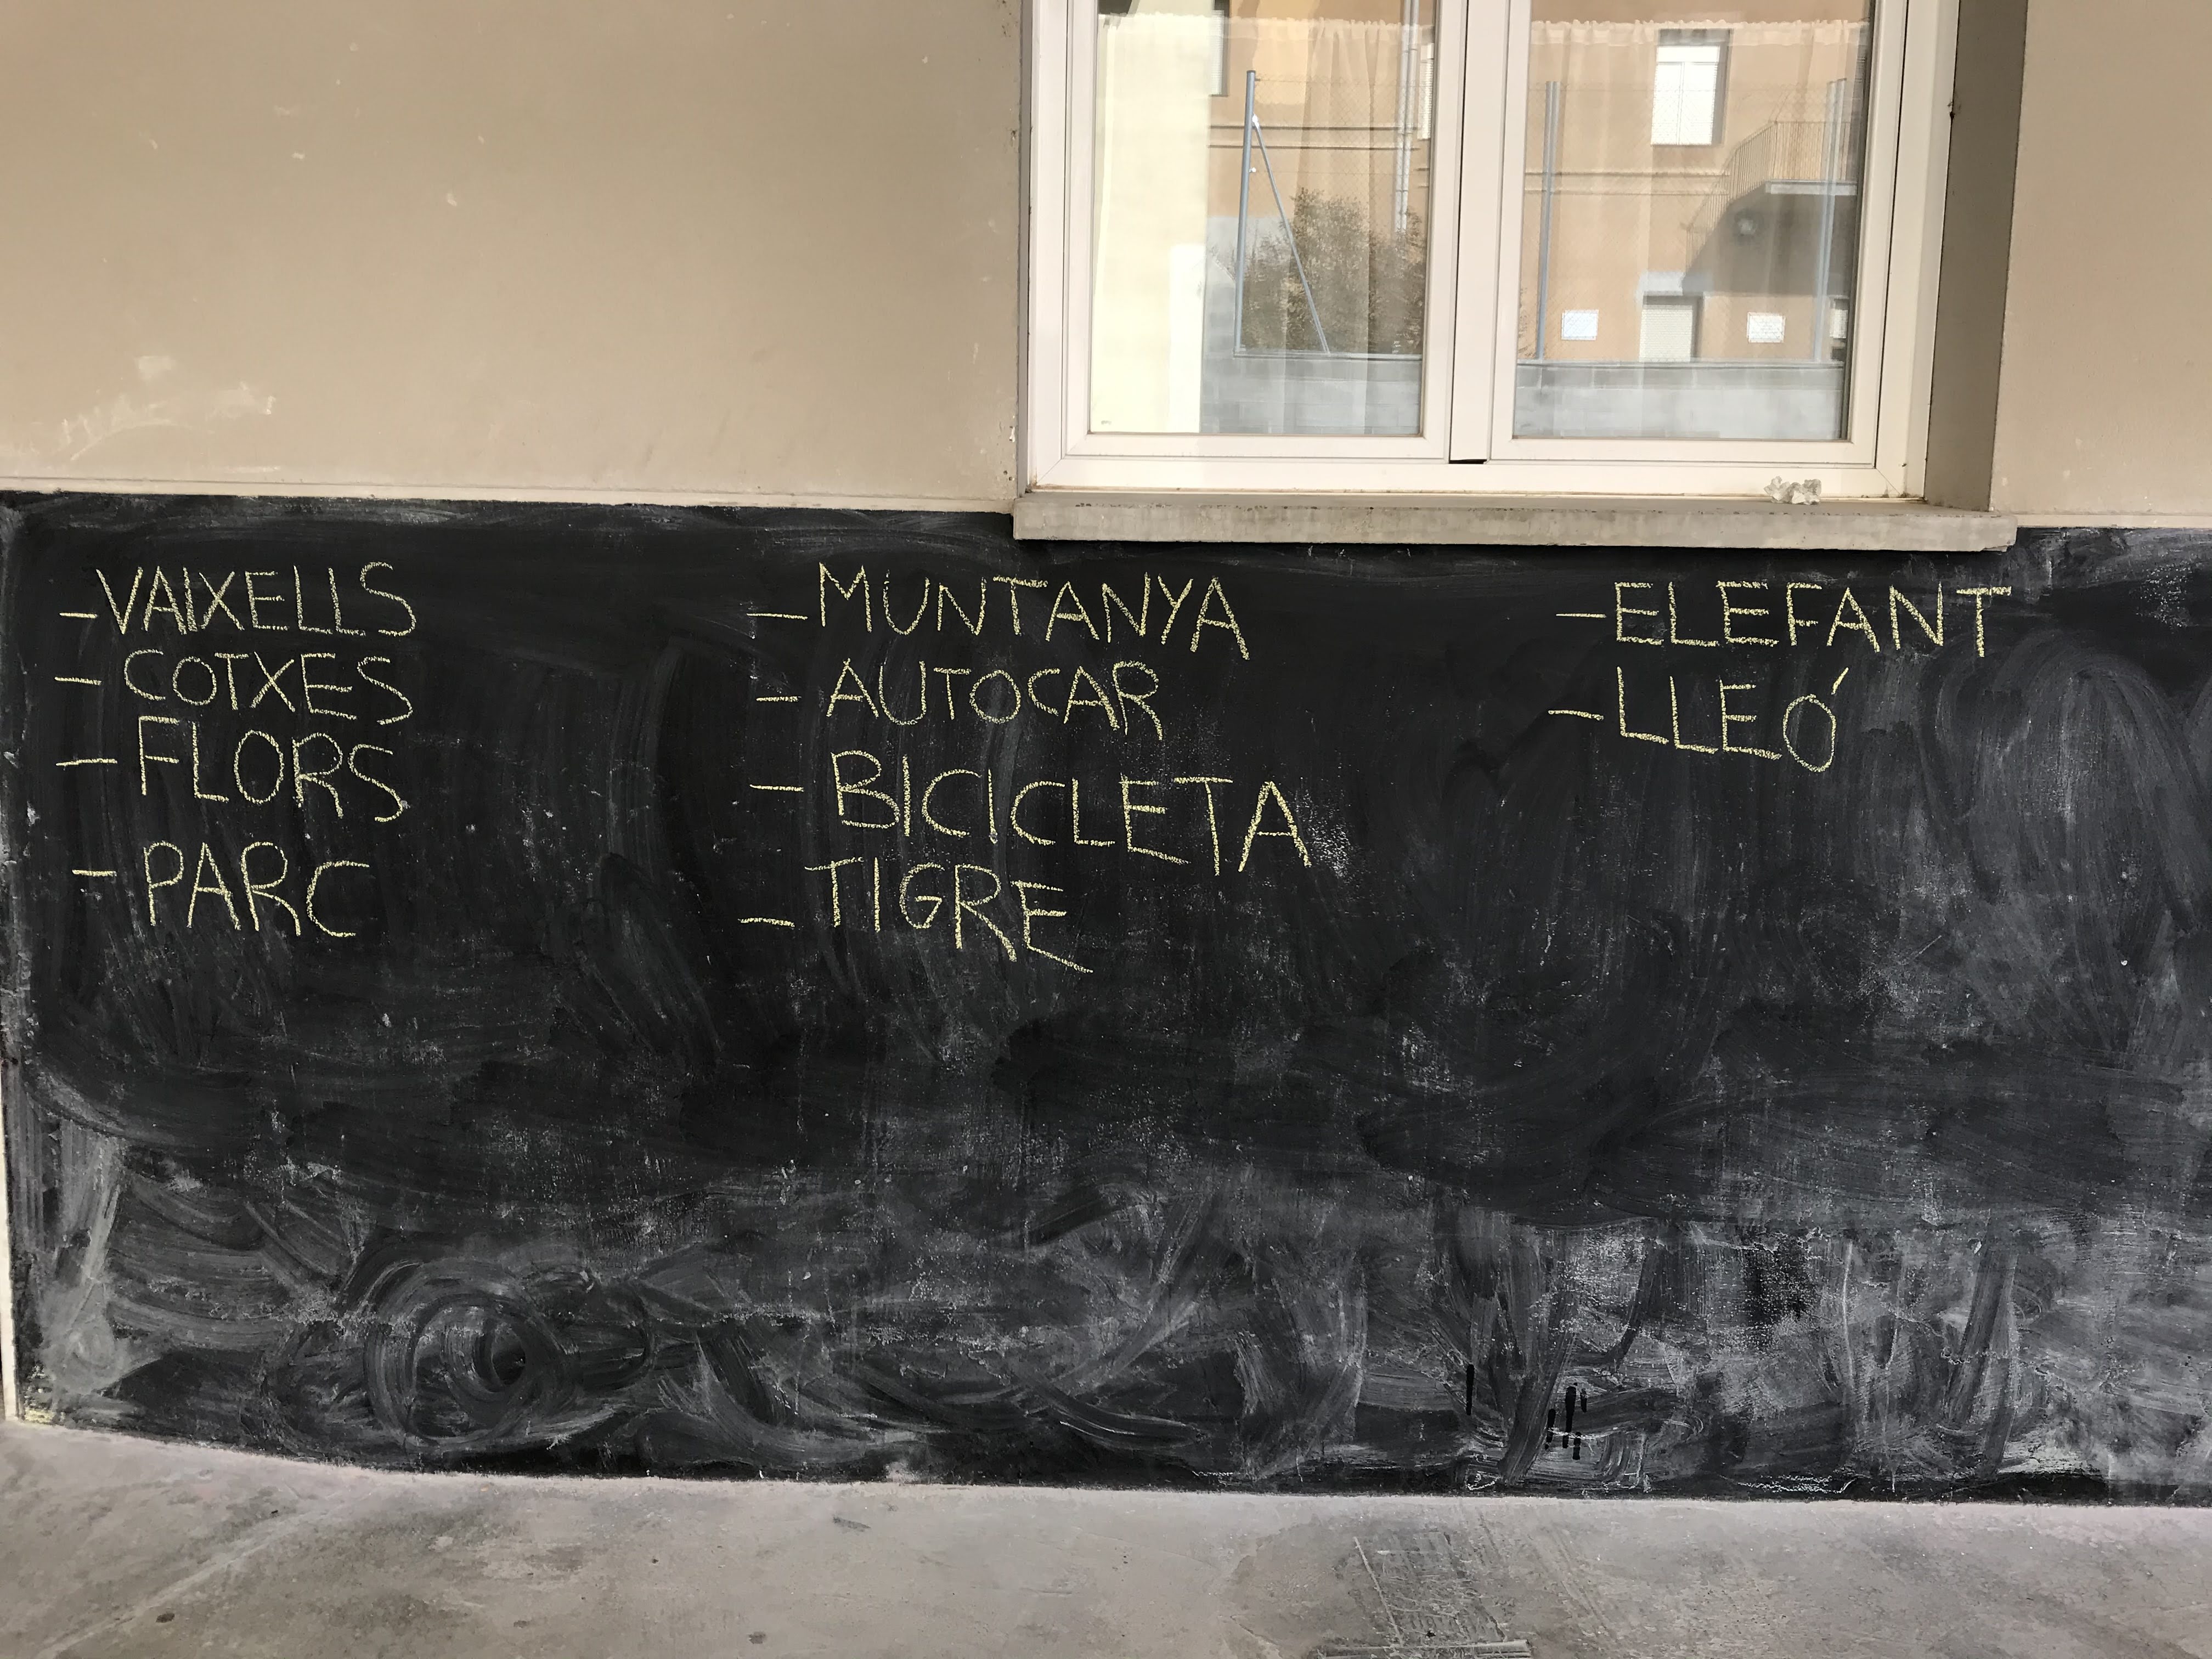 -VAIXELLS
- COTXES
- FLORS
- PARC
- MUNTANYA
- AUTOCAR
- BICICLETA
- TIGRE
-ELEFANT
-LLEÓ